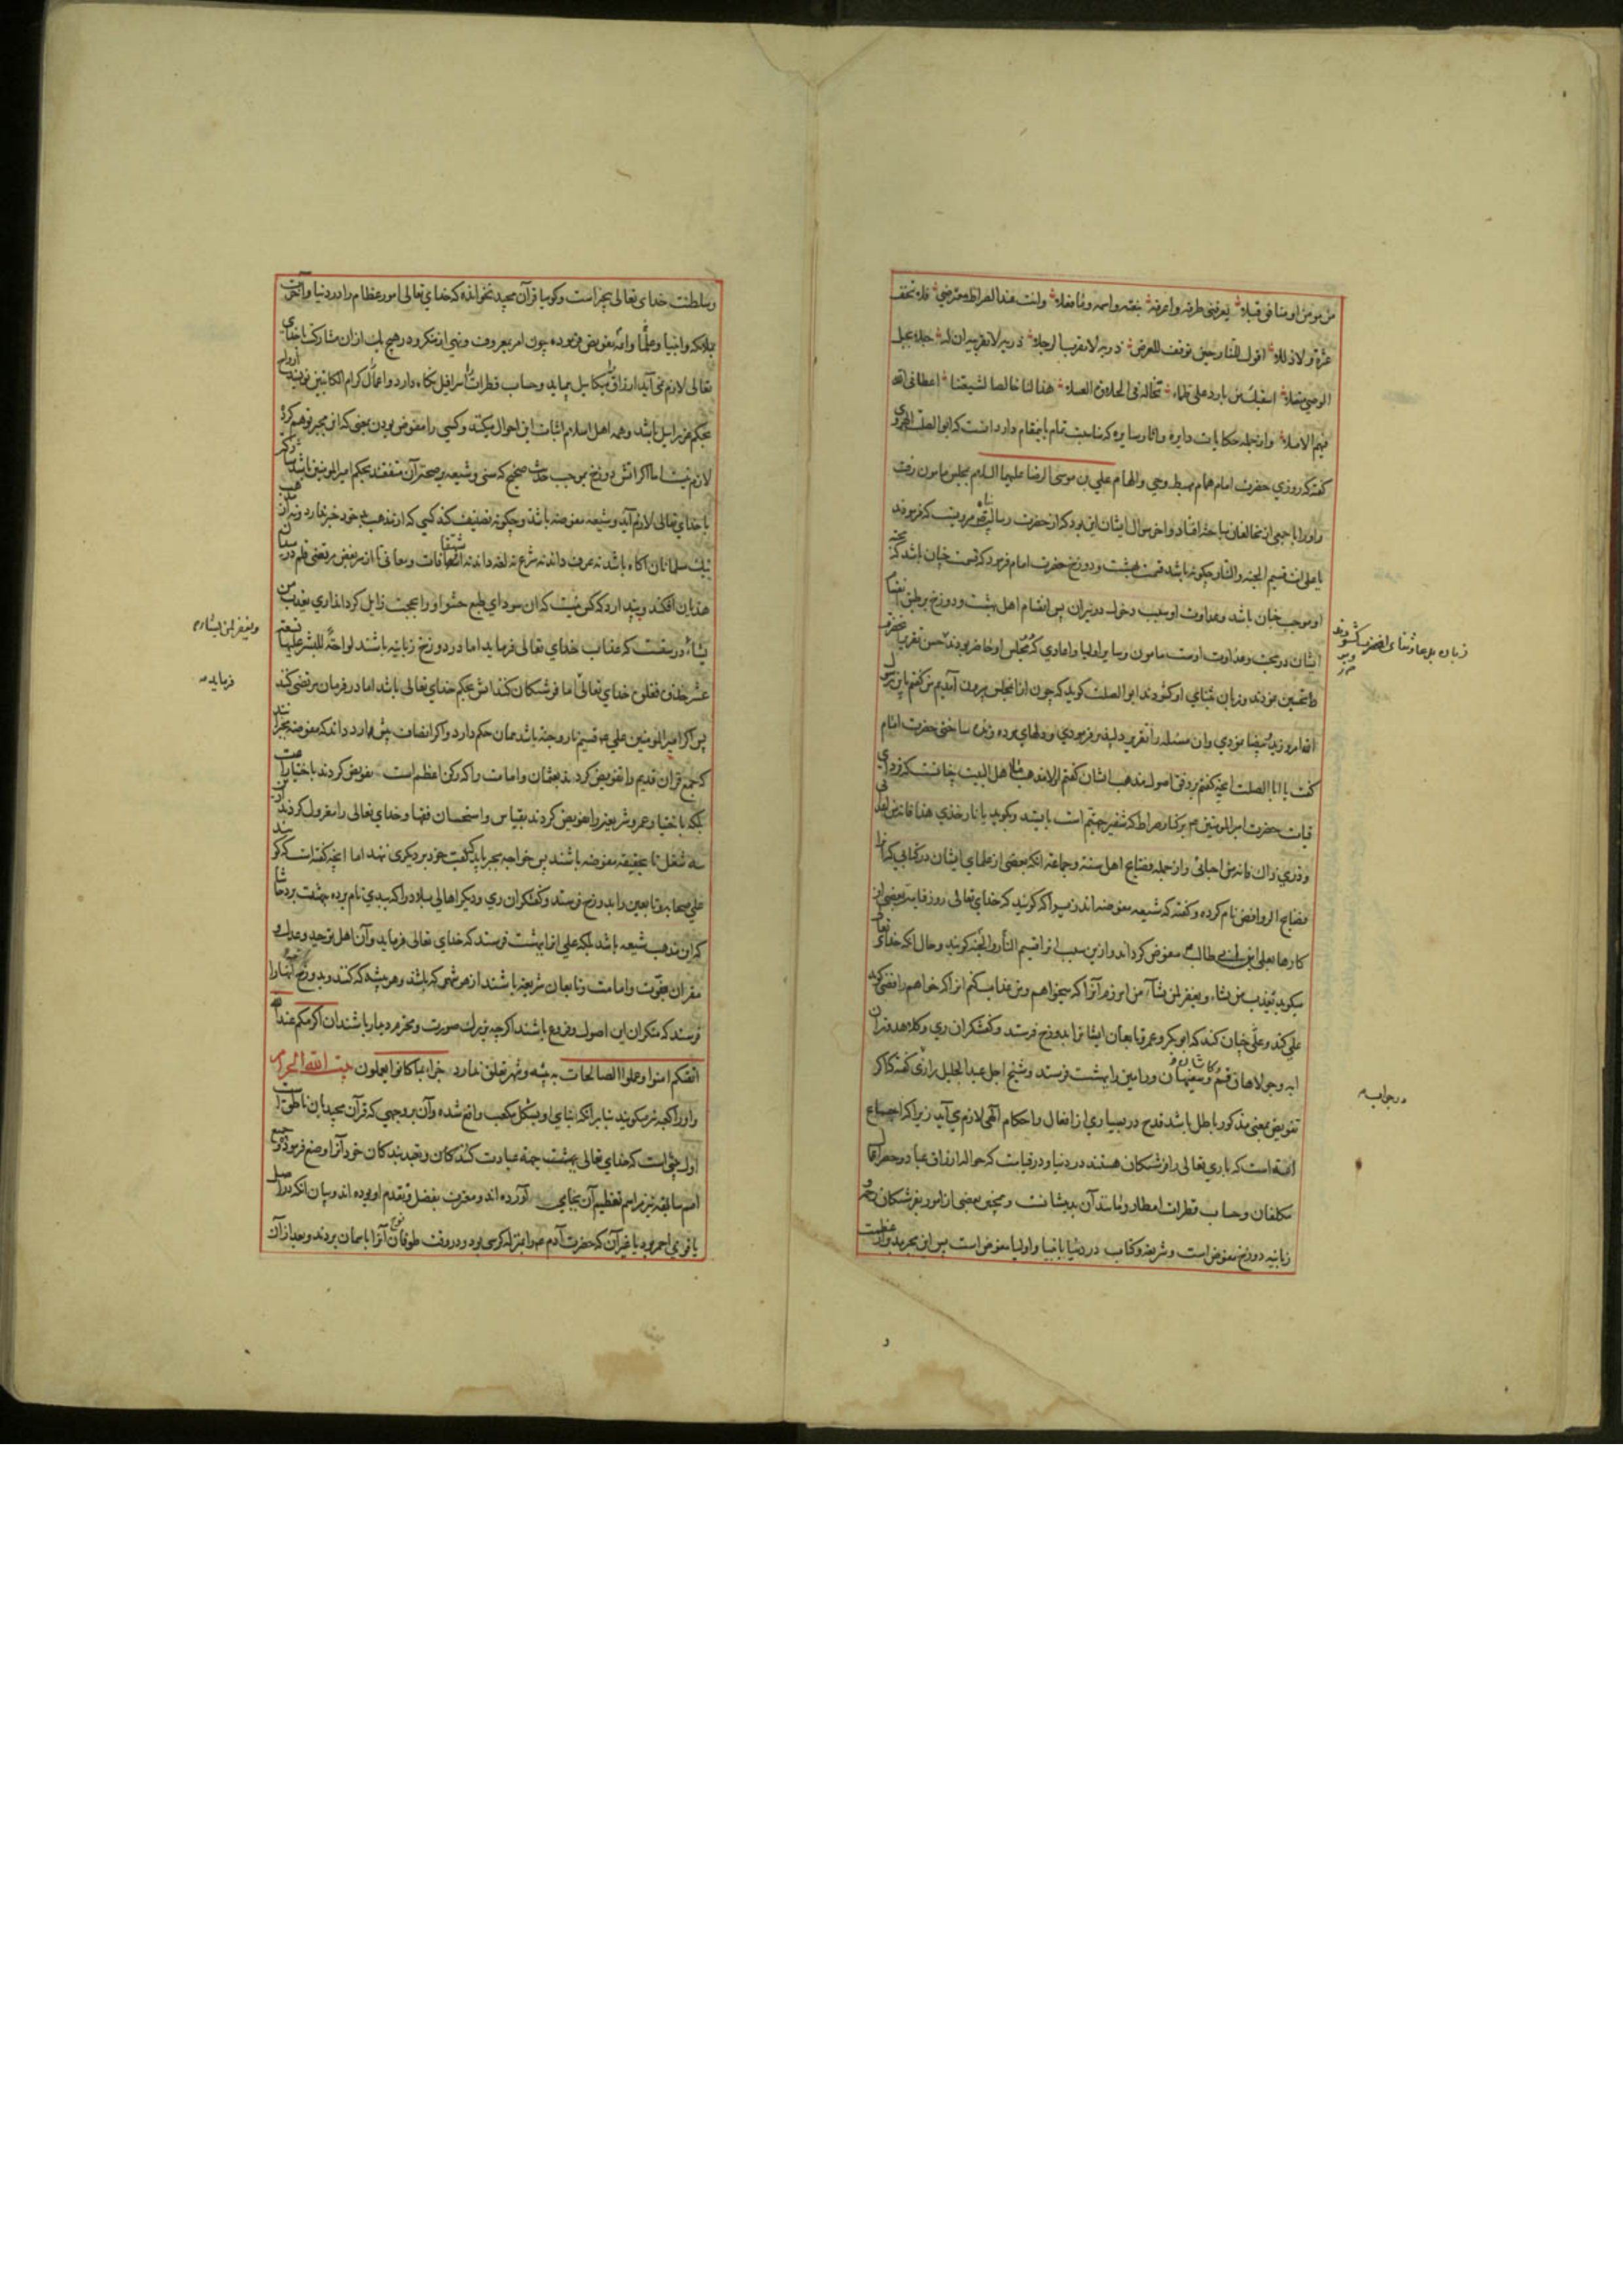 من مومن او منافق قبلا یعرفنی طرفه واعرفه بنعته واسمه وما فعلا وانت عند الصراط معترضی فلا تخف
عثرة ولا زللا اقول للنار حین توقف للعرض ذریه لا تقربی الرجلا ذریه لا تقربیه ان له حبلا بحبل
الوصی متصلا اسقیک من بارد علی ظماء تخاله فی الحلاوة العسلا هذا لنا خالصا لشیعتنا اعطانی الله
فیهم الاملا واز جمله حکایات دایره و اثار سایره که مناسبت تمام باینمقام دارد انست که ابو الصلت الهروی
گفته که روزی حضرت امام همام مهبط وحی والهام علی بن موسی الرضا علیهما السلام بمجلس مامون رفت
و او را با جمعی از مخالفان مباحثه افتاد و اخر سوال ایشان این بود که از حضرت رسالت پناه مرویست که فرمودند
یا علی انت قسیم الجنه والنار چگونه باشد قسمت بهشت و دوزخ حضرت امام فرمود که قسمت چنان باشد که محبت
او موجب جنان باشد و عداوت او سبب دخول در نیران پس انقسام اهل بهشت و دوزخ بر طبق اقتضای
ایشان در محبت و عداوت اوست مامون و سایر اولیا و اعادی که بمجلس او حاضر بودند حسن تقریر انحضرت
را تحسین نمودند و زبان بثنای او گشودند ابو الصلت گوید که چون از انمجلس بیرون آمدیم من گفتم یا بن رسول
الله امروز ید بیضا نمودی وان مسئله را تقریر دلپذیر فرمودی و دلهای مرده زنده ساختی حضرت امام
گفت یا ابا الصلت انچه گفتم بر وفق اصول مذهب ایشان گفتم والا مذهب ما اهل البیت چنانست که فردای
قیامت حضرت امیر المومنین بر کنار صراط که شفیر جهنم است بایستد و بگوید یا نار خذی هذا فانه من اعدائی
وذری ذاک فانه من احبائی و از جمله فضایح اهل سنت و جماعة انکه بعضی از علمای ایشان در کتابی که انرا
فضایح الروافض نام کرده و گفته که شیعه مفوضه اند زیرا که گویند که خدای تعالی روز قیامت بعضی از
کارها بعلی ابن ابی طالب مفوض کرداند و ازین سبب او را قسیم النار والجنه گویند و حال انکه خدای تعالی
میگوید یعذب من یشاء ویغفر لمن یشاء من امرزم آنرا که میخواهم و من عذاب کنم انرا که خواهم رافضی گوید
علی کند و علی چنان کند که ابو بکر و عمر و تابعان ایشانرا بدوزخ فرستد و کفشگران ری و کلاه دوزان
ابه و جولاهان قم و کاشان و سفیهان ورامین را ببهشت فرستد و شیخ اجل عبد الجلیل رازی گفته که اگر
تفویض بمعنی مذکور باطل باشد قدح در بسیاری از افعال و احکام الهی لازم می آید زیرا که اجماع
امة است که باری تعالی را فرشتگان هستند در دنیا و در قیامت که حواله ارزاق عباد و حفظ اعمال
مکلفان و حساب قطرات امطار و مانند آن بدیشانست و همچنین بعضی از امور بفرشتگان
زبانیه دوزخ مفوض است و شریعة و کتاب در دنیا بانبیا و اولیا مفوض است پس این مجبر بد
زبان بمدعا و ثنای انحضرت گشودند
در جواب
و سلطنت خدای تعالی بیخبر است و گویا قرآن مجید نخوانده که خدای تعالی امور عظام را در دنیا و آخرت
بملائکه و انبیا و علما و ائمه تفویض فرموده چون امر بمعروف و نهی از منکر و در هیچ یک ازان مشارکت با خدای
تعالی لازم نمی آید ارزاق میکائیل پیماید و حساب قطرات اسرافیل نگاه دارد و اعمال کرام الکاتبین نویسند ارواح
بحکم عزرائیل باشد و همه اهل اسلام اثبات این احوال میکنند و کسی را مفوض بودن بمعنی که این مجبر توهم کرده
لازم نیست اما اگر اتش دوزخ بموجب حدیث صحیح که سنی و شیعه بر صحت آن متفقند بحکم امیر المومنین باشد
با خدای تعالی لازم آید و شیعه مفوضه باشند و چگونه تصنیف کند کسی که از مذهب خود خبر ندارد و نه از
یک مسلمانان اگاه باشد نه عرف داند نه شرع نه لغه داند نه اشتقاقات و معانی تا از سر بغض مرتضی قلم در میدان
هذیان افکند و پندارد که کس نیست که ان سودای طبع حشو او را بحجت زایل کرداند اری یعذب من
یشاء درست است که عذاب خدای تعالی فرماید اما در دوزخ زبانیه باشند لواحة للبشر علیها تسعة
عشر خذوه فغلوه خدای تعالی اما فرشتگان کنند اتش بحکم خدای تعالی باشد اما در فرمان مرتضی کند
پس اگر امیر المومنین علی قسیم نار و جنه باشد همان حکم دارد و اگر انصاف پیش دارد داند که مفوضه مجبرانند
که جمع قران قدیم را تفویض کردند بعثمان و امامت را که رکن اعظم است تفویض کردند باختیار امت
بلکه باختیار عمر و شریعتر را تفویض کردند بقیاس و استحسان فقها و خدای تعالی را معزول کردند ازین
سه شغل تا بحقیقه مفوضه باشند پس خواجه مجبر باید که تهمت خود بر دیگری ننهد اما انچه گفته است که گویند
علی صحابه و تابعین را بدوزخ فرستد و کفشگران ری و دیگر اهالی بلاد را که ببدی نام برده ببهشت برد حاشا
که ان مذهب شیعه باشد بلکه علی انرا ببهشت فرستد که خدای تعالی فرماید و آن اهل توحید و عدل و
مقران بنبوت و امامت و تابعان شریعتر باشند از هر شهری که باشند و هر پیشه که کنند و بدوزخ انها را
فرستد که منکران این اصول و فروع باشند اگر چه بزرگ صورت و محترم دیار باشند ان اکرمکم عند الله
اتقیکم امنوا وعملوا الصالحات به پیشه و شهر تعلق ندارد جزاء بما کانوا یعملون بیت الله الحرام
و او را کعبه نیز میگویند بنابر انکه بنای او بشکل مکعب واقع شده و آن بروجهی که قرآن مجید بان ناطق است
اول بیتی است که خدای تعالی بجهت عبادت کنندگان و تعبد بندگان خود آنرا وضع فرموده و جمیع
امم سابقه نیز مراسم تعظیم آن بجای آورده اند و معترف بفضل و تقدم او بوده اند و بیان انکه در اصل
یاقوتی احمر بود یا غیر آن که حضرت آدم را بمنزله کرسی بود و در وقت طوفان نوح آنرا باسمان بردند و بعد ازان
ویغفر لمن یشاء
فرماید